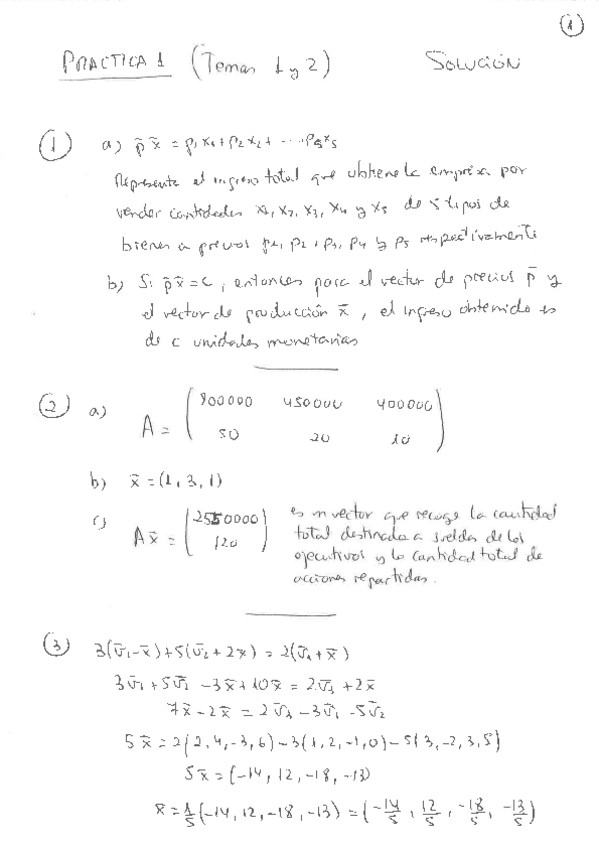 1
PRACTICA 1 (Temas 1 y 2) SOLUCIÓN
1 a) p̄ x̄ = p₁x₁ + p₂x₂ + ... p₅x₅
Representa el ingreso total que obtiene la empresa por
vender cantidades x₁, x₂, x₃, x₄ y x₅ de 5 tipos de
bienes a precios p₁, p₂, p₃, p₄ y p₅ respectivamente
b) Si p̄ x̄ = c, entonces para el vector de precios p̄ y
el vector de producción x̄, el ingreso obtenido es
de c unidades monetarias
2 a) A = ( 900000 450000 400000
50 20 10 )
b) x̄ = (1, 3, 1)
c) A x̄ = ( 2550000
120 )
es un vector que recoge la cantidad
total destinada a sueldos de los
ejecutivos y la cantidad total de
acciones repartidas.
3 3(v̄₁ - x̄) + 5(v̄₂ + 2x̄) = 2(v̄₃ + x̄)
3v̄₁ + 5v̄₂ - 3x̄ + 10x̄ = 2v̄₃ + 2x̄
7x̄ - 2x̄ = 2v̄₃ - 3v̄₁ - 5v̄₂
5x̄ = 2(2, 4, -3, 6) - 3(1, 2, -1, 0) - 5(3, -2, 3, 5)
5x̄ = (-14, 12, -18, -13)
x̄ = 1/5 (-14, 12, -18, -13) = (-14/5, 12/5, -18/5, -13/5)